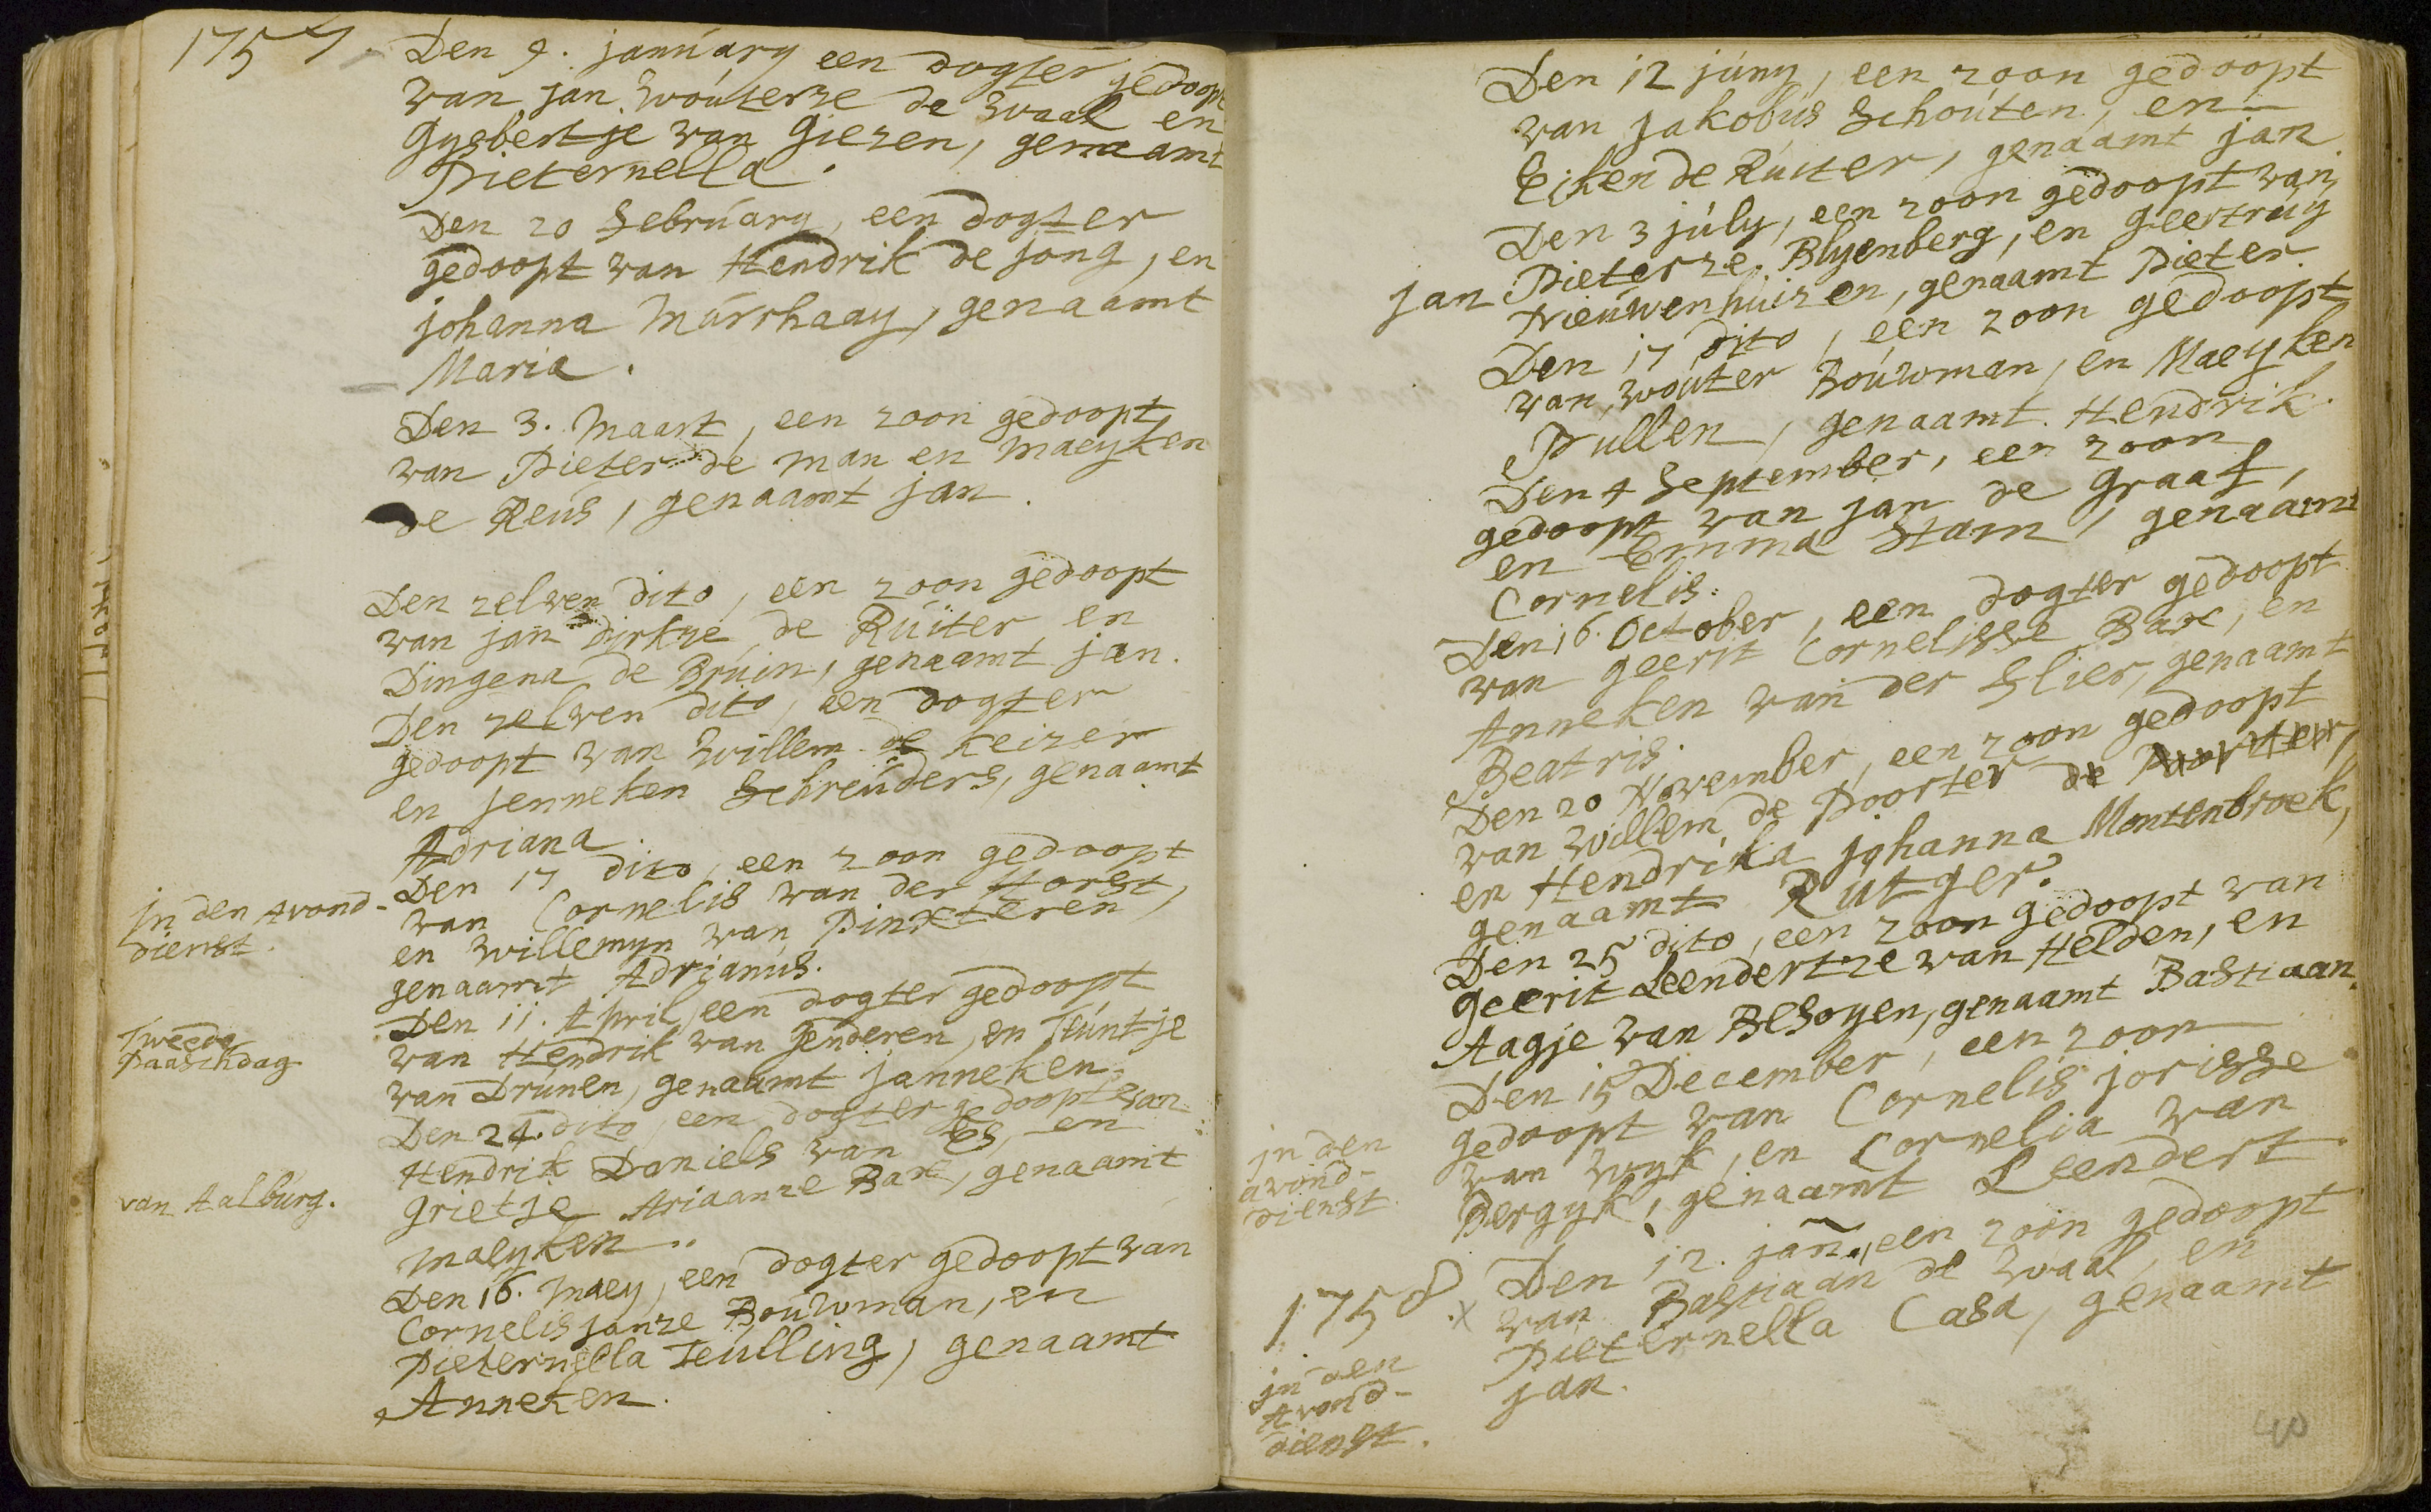 1757
Den 9. january een dogter gedoopt
van jan wouterze de waal en
Gysbertje van Giezen, genaamt
Pieternella.
Den 20 February, een dogter
gedoopt van Hendrik de jong, en
johanna Marshaay, genaamt
Maria.
Den 3. Maart, een zoon gedoopt
van Pieter de man en Maeyken
de Reus, genaamt jan.
Den zelven dito, een zoon gedoopt
van jan dirkze de Ruiter en
Dingena de Bruin, genaamt jan.
Den zelven dito, een dogter
gedoopt van Willem de Keizer
en jenneken Schreuders, genaamt
Adriana.
in den Avond-
dienst.
Den 17 dito, een zoon gedoopt
van Cornelis van der Horst,
en willemyn van Pinxteren
genaamt Adrianus.
Tweede
Paaschdag
Den 11. April, een dogter gedoopt
van Hendrik van Genderen, en Teuntje
van Drunen, genaamt janneken.
Den 24. dito, een dogter gedoopt van
Hendrik Daniels van Es, en
van Aalburg.
Grietje Ariaanze Bax, genaamt
Maeyken.
Den 16. Maey, een dogter gedoopt van
Cornelis janze Bouwman, en
Pieternella Teulling, genaamt
Anneken.
Den 12 juny, een zoon gedoopt
van jakobus Schouten, en
Eiken de Ruiter, genaamt jan.
Den 3 july, een zoon gedoopt van
jan Pieterze Blyenberg, en Geertruy
Nieuwenhuizen, genaamt Pieter
Den 17 dito, een zoon gedoopt
van wouter Bouwman, en Maeyken
Pullen, genaamt Hendrik.
Den 4 September, een zoon
gedoopt van jan de Graaf,
en Emma Stam, genaamt
Cornelis.
Den 16. October, een dogter gedoopt
van geerit Cornelisse Bax, en
Anneken van der Slier, genaamt
Beatris.
Den 20 November, een zoon gedoopt
van Willem de Poorter de
en Hendrika johanna Montenbroek,
genaamt Rutger.
Den 25 dito, een zoon gedoopt van
Geerit Leendertze van Helden, en
Aagje van Besoyen, genaamt Bastiaan.
Den 15 December, een zoon
gedoopt van Cornelis jorisse
in den
avond-
dienst
van Wyk, en Cornelia van
Bergyk, genaamt Leendert.
1758.
Den 12. jan., een zoon gedoopt
x van Bastiaan de waal, en
Pieternella Casa, genaamt
jan.
in den
Avond-
dienst.
40